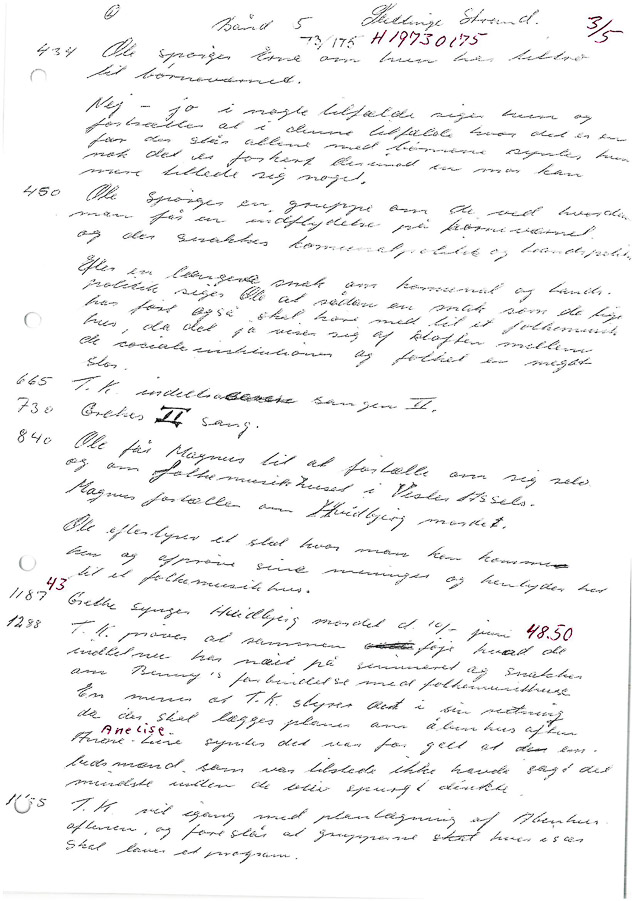 Bånd 5 Gullinge Strand. 3/5
73/175 H19730175
434 Ole spørges Erna om hun har tiltro
til børneværnet.
Nej - jo i nogle tilfælde siger hun og
fortsætter at i denne tilfælde hvor det er en
far der står allene med børnene synes hun
nok det er forkert derimod en mor kan
mere tillade sig noget.
450 Ole spørges en gruppe om de ved hvordan
man får en indflydelse på børneværnet
og der snakkes kommunalpolitik og landspolitik
Efter en længere snak om kommunal og lands-
politik siger Ole at sådan en snak som de lige
har ført også skal høre med til et folkemusik
hus, da det jo viser sig at kløften mellem
de sociale institutioner og folket er meget
stor.
665 T.K. sangen II.
730 Grethes II sang.
840 Ole får Magnus til at fortælle om sig selv
og om folkemusikhuset i Vester Assels.
Magnus fortæller om Hvidbjerg mordet.
Ole efterlyser et sted hvor man kan komme
hen og afprøve sine meninger og henlyder her
til et folkemusikhus.
1187 43 Grethe synger Hvidbjerg mordet d. juni 48.50
1288 T.K. prøver at sammen føje hvad de
indtil nu har nået på seminaret og snakker
om Benny's forbindelse med folkemusikhuse
En mener at T.K. styrer det i sin retning
da der skal lægges planer om åbenhus aften
Anelise synes det var for galt at en em-
bedsmand som var tilstede ikke havde sagt det
mindste uden de blev spurgt direkte.
T.K. vil igang med planlægning af Åbenhus
aftenen, og foreslår at grupperne hver især
skal laver et program.